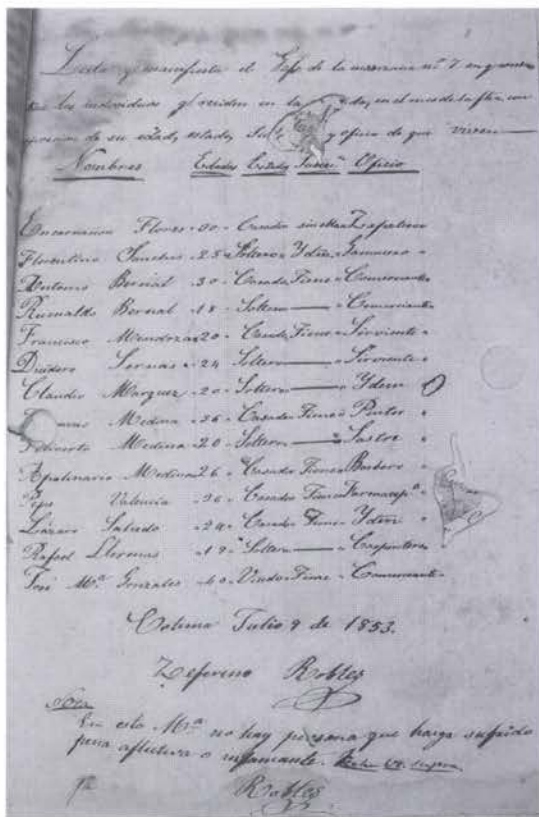 Lista q. manifiesta el Gefe de la manzana nº 7 en q. constan
los individuos q. reciden en la en el mes de la fha, con
exprecion de su edad, estado, y oficio de que viven
Nombres Edades Estado Oficio
Encarnacion Flores " 30 " Casado sin Zapatero
Florentino Sanches " 25 " Soltero Ydem
Antonio Bernal " 30 " Casado Tiene " Comerciante
Rumaldo Bernal " 18 " Soltero — " Comerciante
Francisco Mendoza " 20 " Casado Tiene " Sirviente "
Decidero " 24 " Soltero — " Sirviente "
Claudio Marquez " 20 " Soltero — " Ydem
Medina " 36 " Casado Tiene " Pintor "
Medina " 20 " Soltero — " Sastre "
Apolinario Medina " 26 " Casado Tiene " Barbero "
Valencia " 36 " Casado Tiene
Lázaro Salcedo " 24 " Casado Tiene " Ydem
Rafael Llerenas " 19 " Soltero — " Carpintero "
José Mª Gonzales " 40 " Viudo Tiene " Comerciante
Colima Julio 9 de 1853.
Zeferino Robles
Nota
En esta Mª no hay persona que haiga sufrido
pena aflictiva o infamante. Fecha Ut. supra
Robles